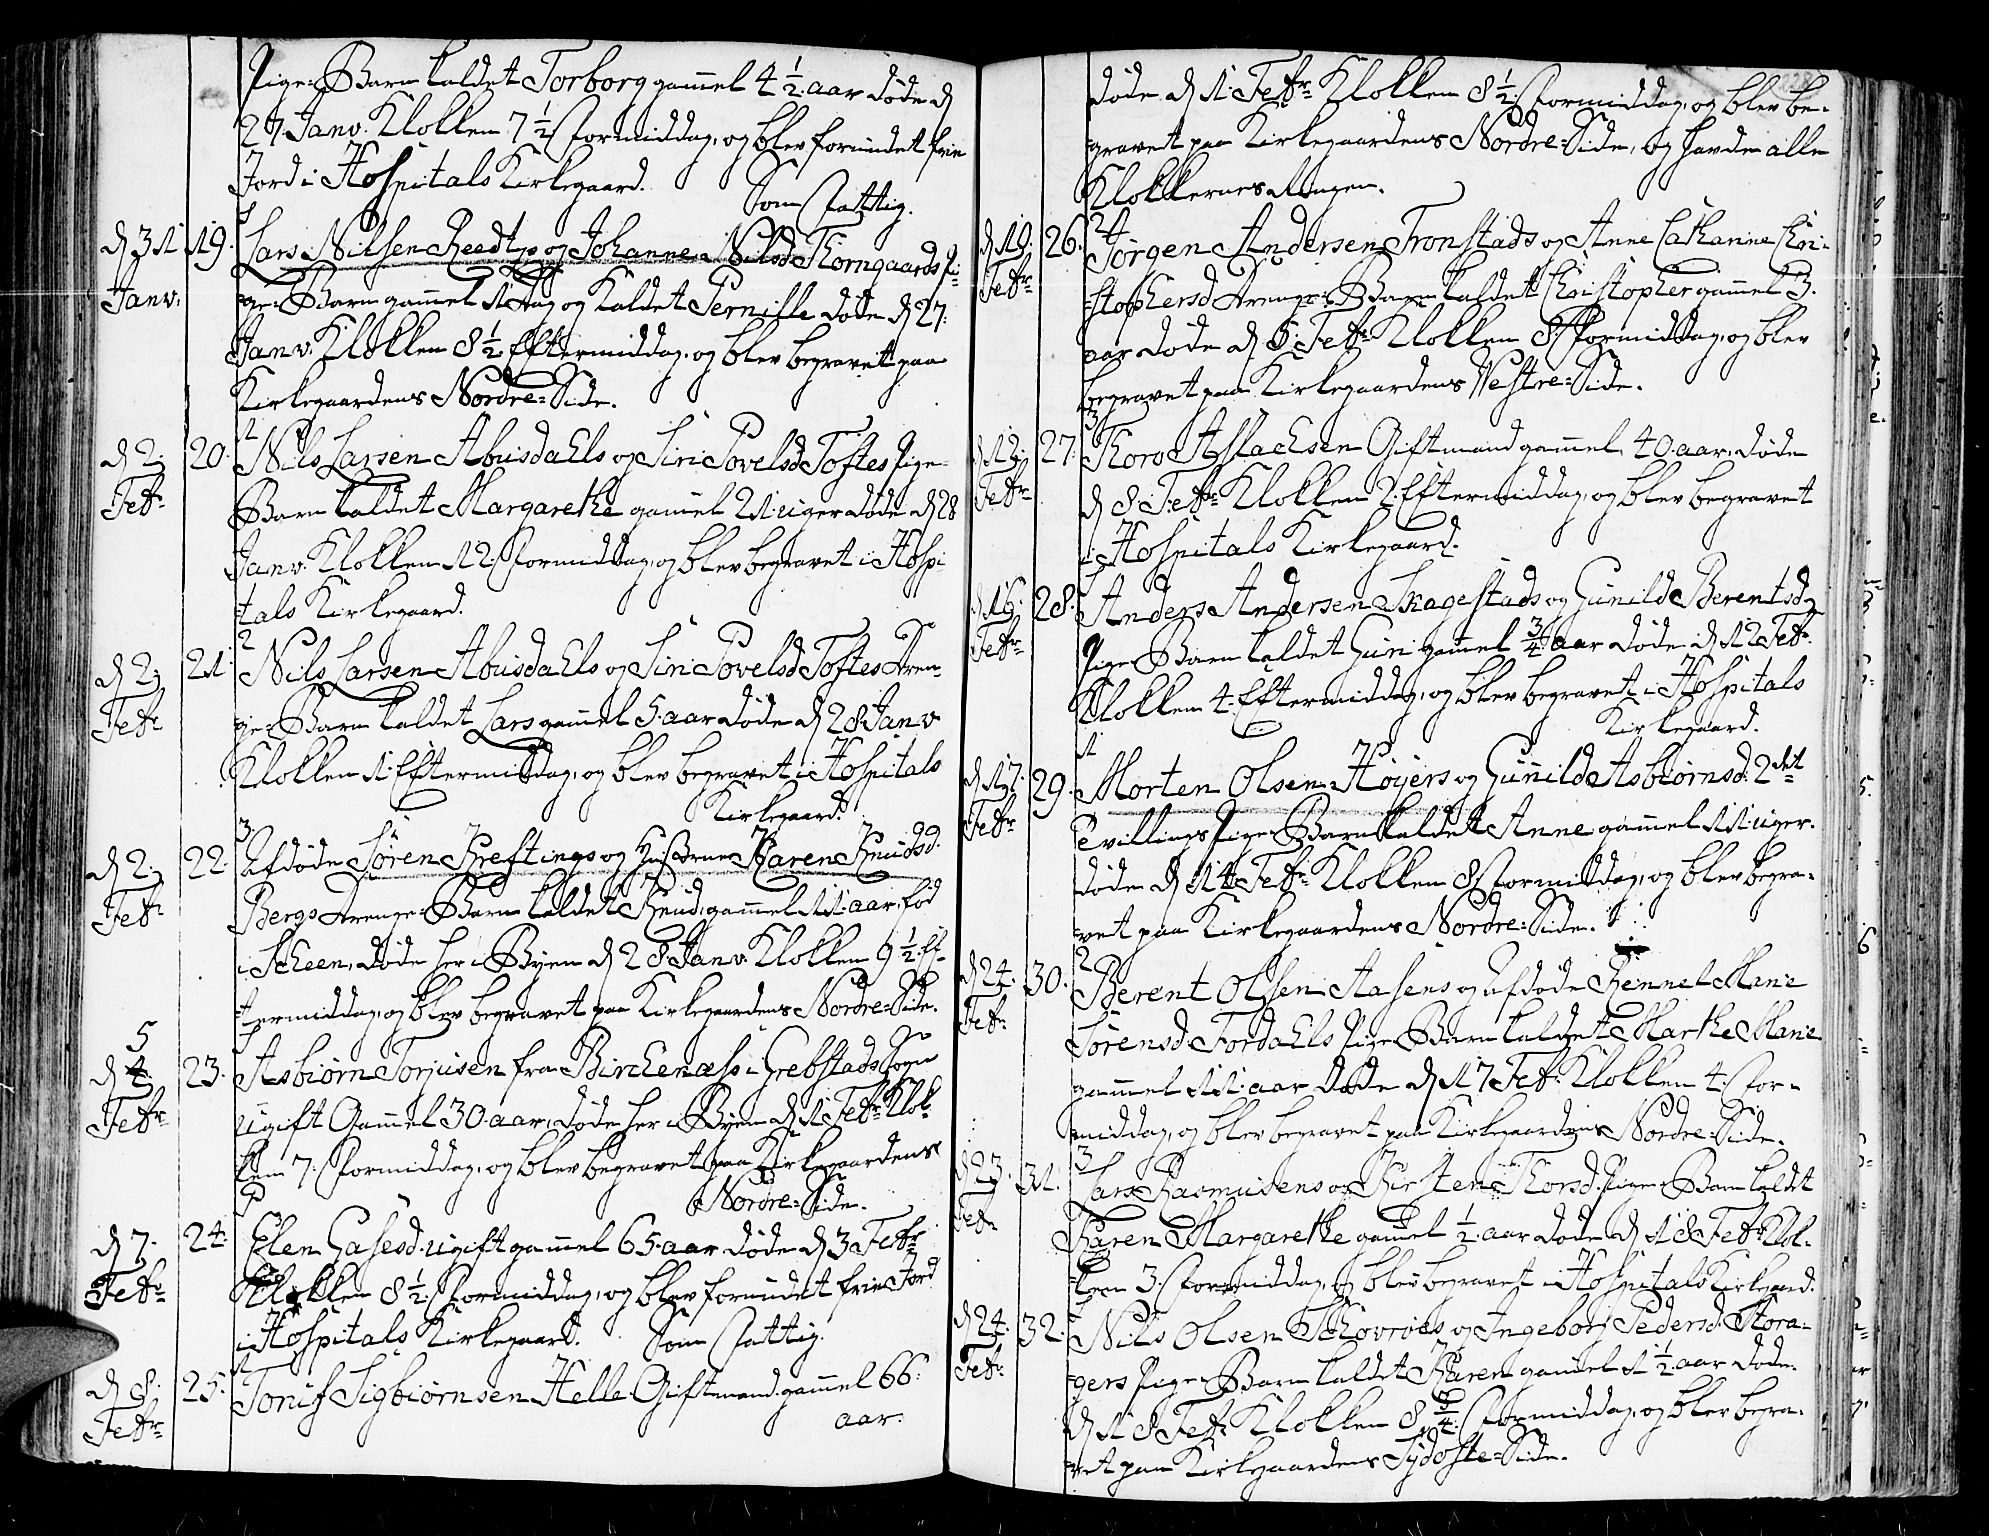 Pige-Barn kaldet Torborg gam̄el 4 1/2 aar døde d
27 Janv. Klokken 7 1/2 Formiddag, og blev forundet frie
Jord i Hospitals Kirkegaard.
Som Fattig.
d 31 19. Lars Nilsen Reedtz og Johanne Nilsd Thorngaards Pi-
Janv. ge-Barn gam̄el 1 Dag og kaldet Pernille døde d 27
Janv. Klokken 8 1/2 Eftermiddag, og blev begravet paa
Kirkegaardens Nordre-Side.
1
d 2. 20. Nils Larsen Abusdahls og Siri Povelsd Toftes Pige-
Febr. Barn kaldet Margarethe gam̄el 21 uger døde d 28
Janv. Klokken 12 Formiddag, og blev begravet i Hospi-
tals Kirkegaard.
2
d 2. 21 Nils Larsen Abusdahls og Siri Povelsd Toftes Dren-
Febr. ge-Barn kaldet Lars gam̄el 5 aar døde d 28 Janv
Klokken 1 Eftermiddag, og blev begravet i Hospitals
Kirkegaard.
3.
d 2. 22. Afdøde Søren Kreftings og Hustrue Karen Knudsd.
Febr. Bergs Drenge-Barn kaldet Knud, gam̄el 11 aar, fød
i Scheen, døde her i Byen d 28 Janv. Klokken 9 1/2 Ef-
termiddag, og blev begravet paa Kirkegaardens Nordre-Side.
5
d 4. 23. Asbiørn Torjusen fra Birchenæss i Grebstads Sogn
Febr. ugift Gammel 30 aar, døde her i Byen d 1 Febr Klok
ken 7. Formiddag, og blev begravet paa Kirkegaardens
Nordre-Side.
d 7. 24. Elen Gasesd. ugift gam̄el 65 aar døde d 3 Febr
Febr. Klokken 8 1/2 Formiddag, og blev forundet frie Jord
i Hospitals Kirkegaard. Som Fattig.
d 8. 25. Tonis Sigbiørnsen Helle Giftmand gam̄el 66
Febr. aar.
døde d 1. Febr Klokken 8 1/2 Formiddag, og blev be-
gravet paa Kirkegaardens Nordre-Side, og havde alle
Klokkernes Ringen.
2
d 10. 26. Jørgen Andersen Tronstads og Anne Cathanine Chri-
Febr. stophersd Drenge-Barn kaldet Christopher gam̄el 3.
aar døde d 6. Febr Klokken 8 Formiddag, og blev
begravet paa Kirkegaardens Vestre-Side.
3
d 12. 27. Thore Aslachsen Giftmand gam̄el 40 aar, døde
Febr. d 8 Febr Klokken 2. Eftermiddag, og blev begravet
i Hospitals Kirkegaard.
d 16. 28. Anders Andersen Skagestads og Gunild Berentsd
Febr. Pige-Barn kaldet Guri gammel 3/4 aar døde d 12 Febr.
Klokken 4 Eftermiddag, og blev begravet i Hospitals
Kirkegaard.
1
d 17. 29. Morten Olsen Høyers og Gunild Asbiørnsd: 2det
Febr. Tvillings Pige-Barn kaldet Anne gammel 11 uger.
døde d 14 Febr Klokken 8 Formiddag, og blev begra-
vet paa Kirkegaardens Nordre-Side.
2
d 24. 30. Berent Olsen Aasens og Afdøde Rennel Marie
Febr. Sørensd Fordahls Pige-Barn kaldet Marthe Marie
gammel 11 aar døde d 17 Febr Klokken 4. For-
middag, og blev begravet paa Kirkegaardens Nordre-Side.
3
d 23. 31. Lars Rasmusens og Kirsten Thorsd. Pige-Barn kaldet
Febr. Karen Margarethe gam̄el 1/2 aar døde d 18 Febr Klok-
ken 3. Formiddag, og blev begravet i Hospitals Kirkegaard.
d 24. 32. Nils Olsen Schovroes og Ingeborg Pedersd. Stora-
Febr. gers Pige-Barn kaldet Karen gam̄el 1 1/2 aar døde
d 18 Febr Klokken 8 3/4 Formiddag, og blev begra-
vet paa Kirkegaardens Sydoste-Side.